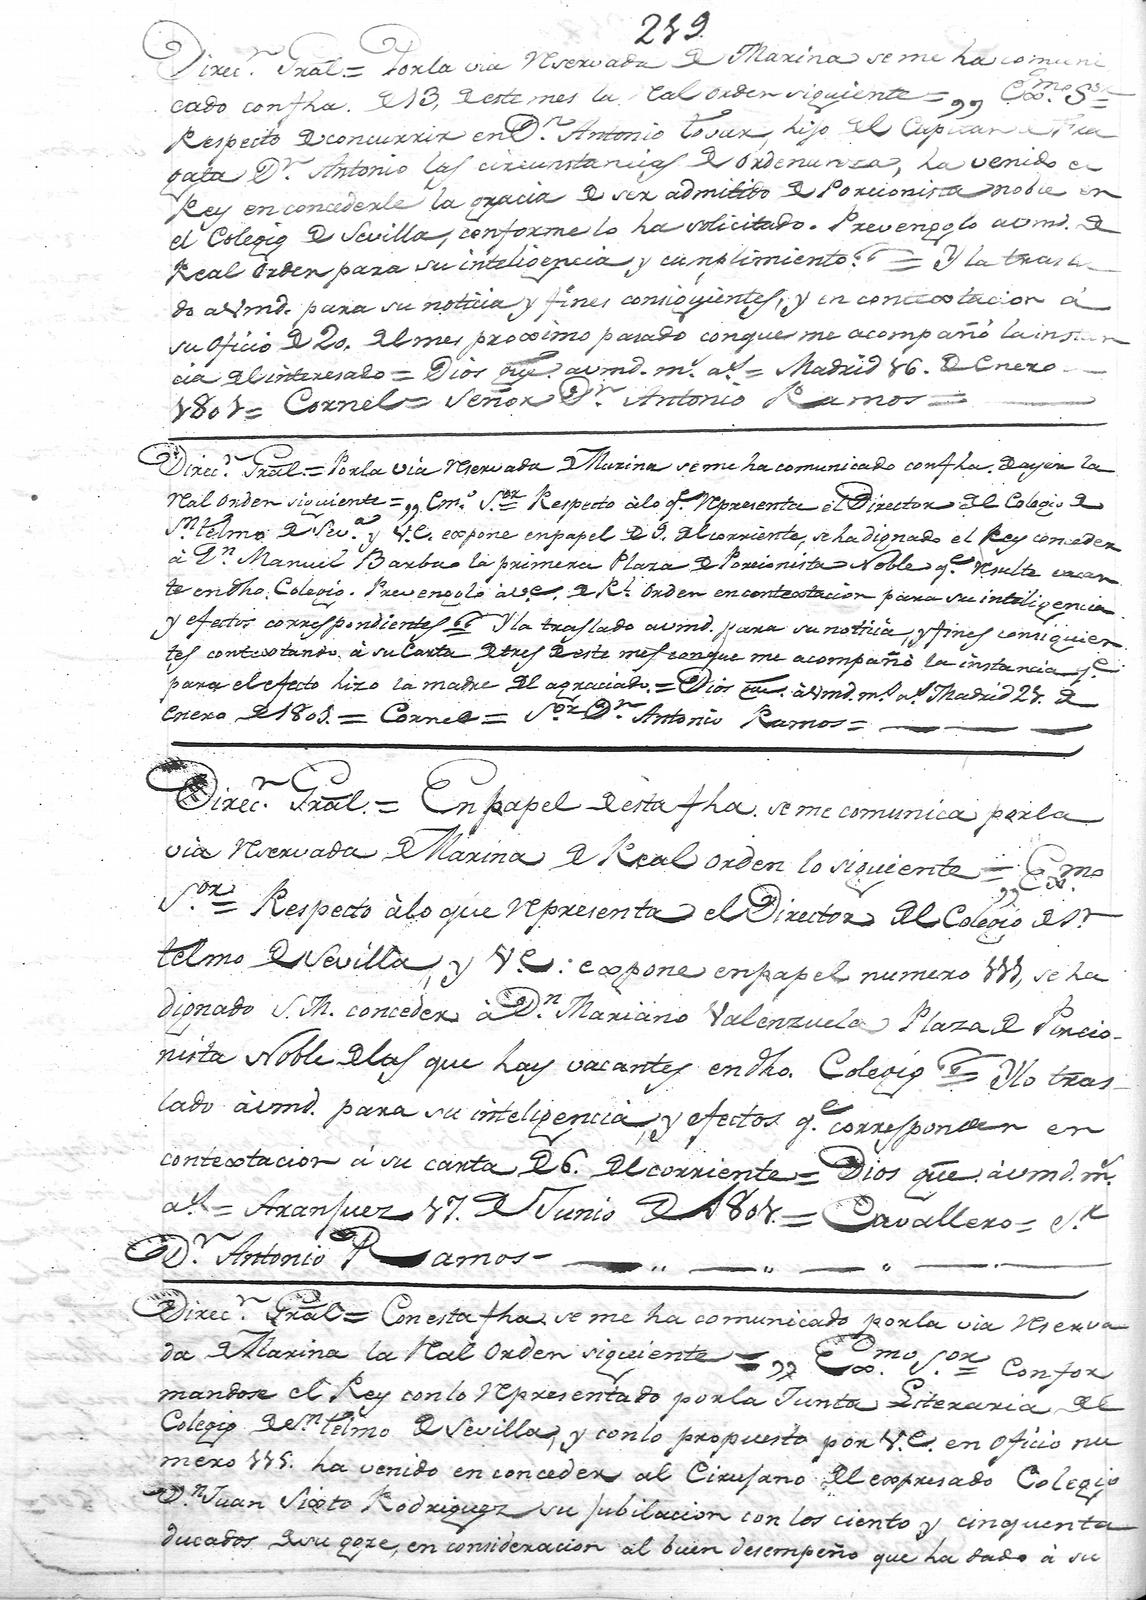 249.
Direc.n Gral = Por la via reservada de Marina se me ha comuni
cado con fha. de 13, de este mes la Real Orden siguiente = ,, Exmo. Sor =
Respecto de concurrir en Dn. Antonio Tovar, hijo del Capitan de Fra
gata Dn. Antonio las circunstancias de ordenanza, ha venido el
Rey en concederle la gracia de ser admitido de Porcionista noble en
el Colegio de Sevilla, conforme lo ha solicitado. Prevengolo a vmd. de
Real Orden para su inteligencia y cumplimiento. = Y la trasla
do a vmd. para su noticia y fines consiguientes, y en contextacion á
su Oficio de 20. del mes proximo pasado con que me acompañó la instan
cia del interesado = Dios gue. a vmd. ms. as. = Madrid 16. de Enero
1801 = Cornel = Señor Dn. Antonio Ramos =
Direc.n Gral. = Por la via reservada de Marina se me ha comunicado con fha. de ayer la
Real Orden siguiente = ,, Exmo. Sor = Respecto à lo qe. representa el Director del Colegio de
Sn. Telmo de Seva. y V.E. expone en papel de 9. del corriente, se ha dignado el Rey conceder
à Dn. Manuel Barba la primera Plaza de Porcionista Noble qe. resulte vacan
te en dho. Colegio. Prevengolo à V.E. de Rl. Orden en contextacion para su inteligencia
y efectos correspondientes = Y la traslado a vmd. para su noticia, y fines consiguien
tes contextando à su Carta de tres de este mes con que me acompañó la instancia qe.
para el efecto hizo la madre del agraciado. = Dios gue. à vmd. ms. as. Madrid 21. de
Enero de 1801. = Cornel = Sor. Dn. Antonio Ramos =
Direc.n Gral. = En papel de esta fha. se me comunica por la
via reservada de Marina de Real Orden lo siguiente = ,, Exmo.
Sor. = Respecto à lo que representa el Director del Colegio de Sn.
Telmo de Sevilla, y V.E. expone en papel numero 111, se ha
dignado S.M. conceder à Dn. Mariano Valenzuela Plaza de Porcio-
nista Noble de las que hay vacantes en dho. Colegio = Y lo tras-
lado à vmd. para su inteligencia, y efectos qe. corresponden en
contextacion á su carta de 6. del corriente = Dios gue. à vmd. ms.
as. = Aranjuez 17. de Junio de 1801. = Cavallero = Sr.
Dn. Antonio Ramos =
Direc.n Gral = Con esta fha. se me ha comunicado por la via reserva
da de Marina la Real Orden siguiente = ,, Exmo. Sor. = Confor
mandose el Rey con lo representado por la Junta Literaria del
Colegio de Sn. Telmo de Sevilla, y con lo propuesto por V.E. en oficio nu
mero 115. ha venido en conceder al Cirujano del expresado Colegio
Dn. Juan Sixto Rodriguez su jubilacion con los ciento y cinquenta
ducados de su goze, en consideracion al buen desempeño que ha dado à su